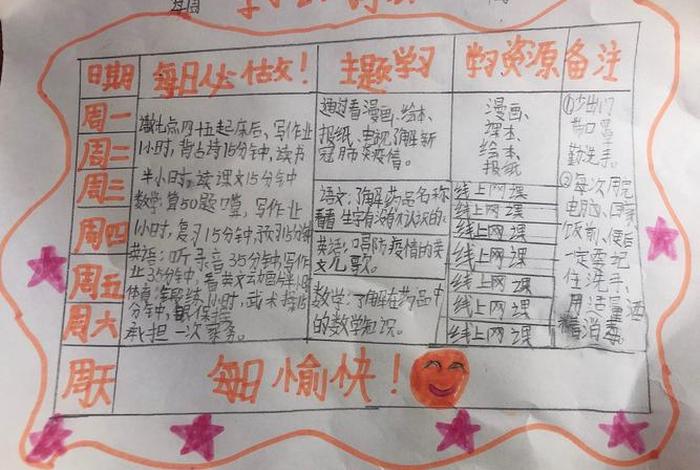 日期
每日必做!
主题学习
学习资源
备注
周一
周二
周三
周四
周五
周六
周天
点四十五起床后,写作业
1小时,背古诗15分钟,读书
半小时,读课文15分钟
数学:算50题口算,写作业
1小时,复习15分钟,预习15分钟
英语:听录音35分钟,写作
业35分钟,看英文动画半小时
体育:锻炼1小时,武术操15
分钟,眼保操
承担一次家务。
通过看漫画、绘本、
报纸、电视了解新
冠肺炎疫情。
语文:了解药品名称
看看生字有没有不认识的。
英语:唱防疫情的英
文儿歌。
数学:了解在药品中
的数学知识。
漫画、
课本、
绘本、
报纸
线上网课
线上网课
线上网课
线上网课
线上网课
线上网课
线上网课
①少出门
带口罩
勤洗手。
②每次用完
电脑、回家
饭前、便后
一定要记
住洗手、
用适量酒
精消毒。
每日愉快!